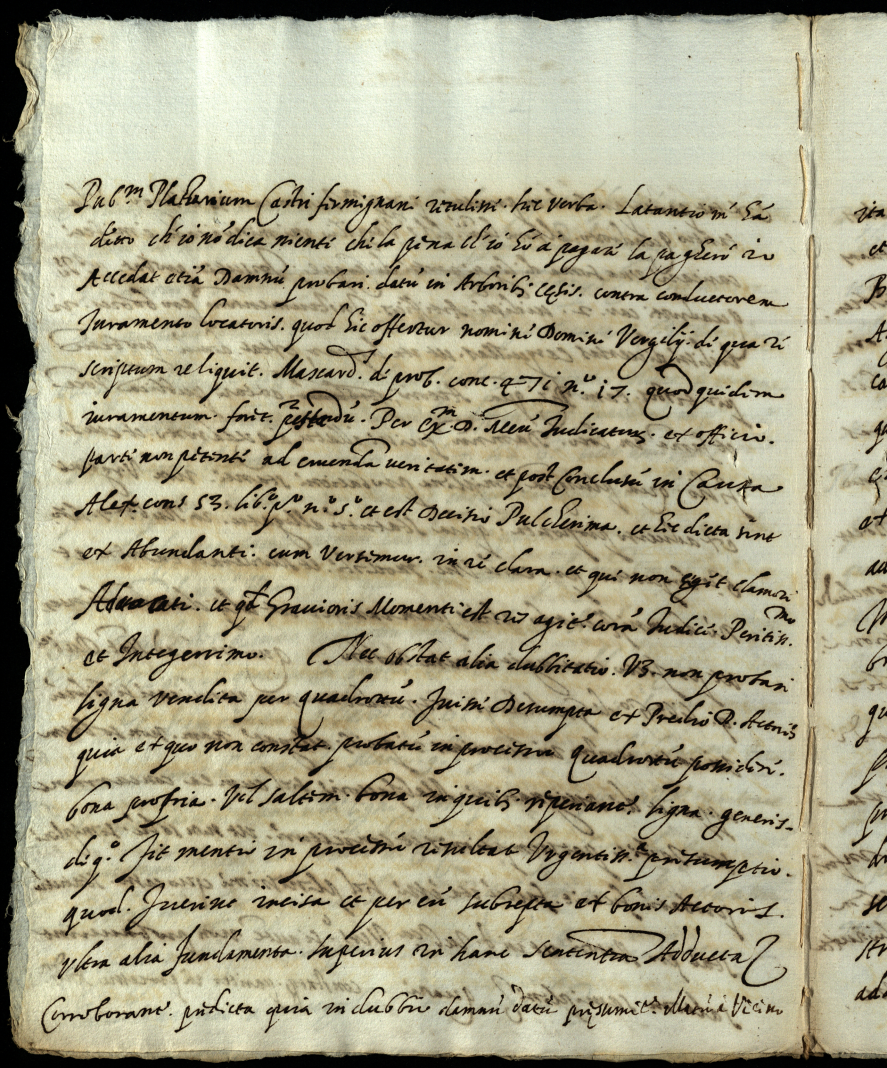 Pub.m Platearium Castri firmignani retulisse hec verba. Latantio m' hà
ditto ch'io nō dica niente che la pena ch'io hò a pagare la pagherò io
Accedat etiā Damnū probari. datū in Arborib. cęsis. contra conductorem
Iuramento locatoris. quod hic offertur nomine Domini Vergilij. de qua re
scriptum reliquit. Mascard. de prob. conc. 471 n.o 17. quod quidem
iuramentum foret. Per Ex.m D. Iudicatur. ex officio.
parte non petente ad eruenda veritatem. et post Conclusū in Causa
Alex. cons 53. lib.o p.o n.o 5.o et est Decisio Pulcherima. et hic dicta sint
ex Abundanti. cum Versemur. in re clara. et qui non egit clamore
Aduocati. et qd Grauioris Momenti est res agit. corā Iudice Peritiss.mo
et Integerrimo. Nec obstat alia dubbitatio. Vz. non probari
ligna vendita per quadrottū. fuisse Desumpta ex Predio D. Actoris
quia ex quo non constat. probatū in processu quadrottū possidere.
bona propria. Vel saltem. bona in quib. reperiant. ligna. generis
de q.o fit mentio in processu resultat Vrgentiss.a presumptio.
quod. fuerint incisa et per eū subrepta ex bonis Actoris.
vltra alia fundamenta. superius in hanc sententia Adducta
Corroborant. predicta quia in dubbio damnū datū pręsumit. à Vicino
ita
et